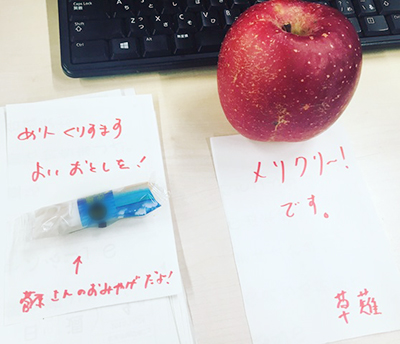 めり〜 くりすます
よい おとしを!
↑
さんのおみやげだよ!
メリクリ〜!
です。
草薙
Caps Lock